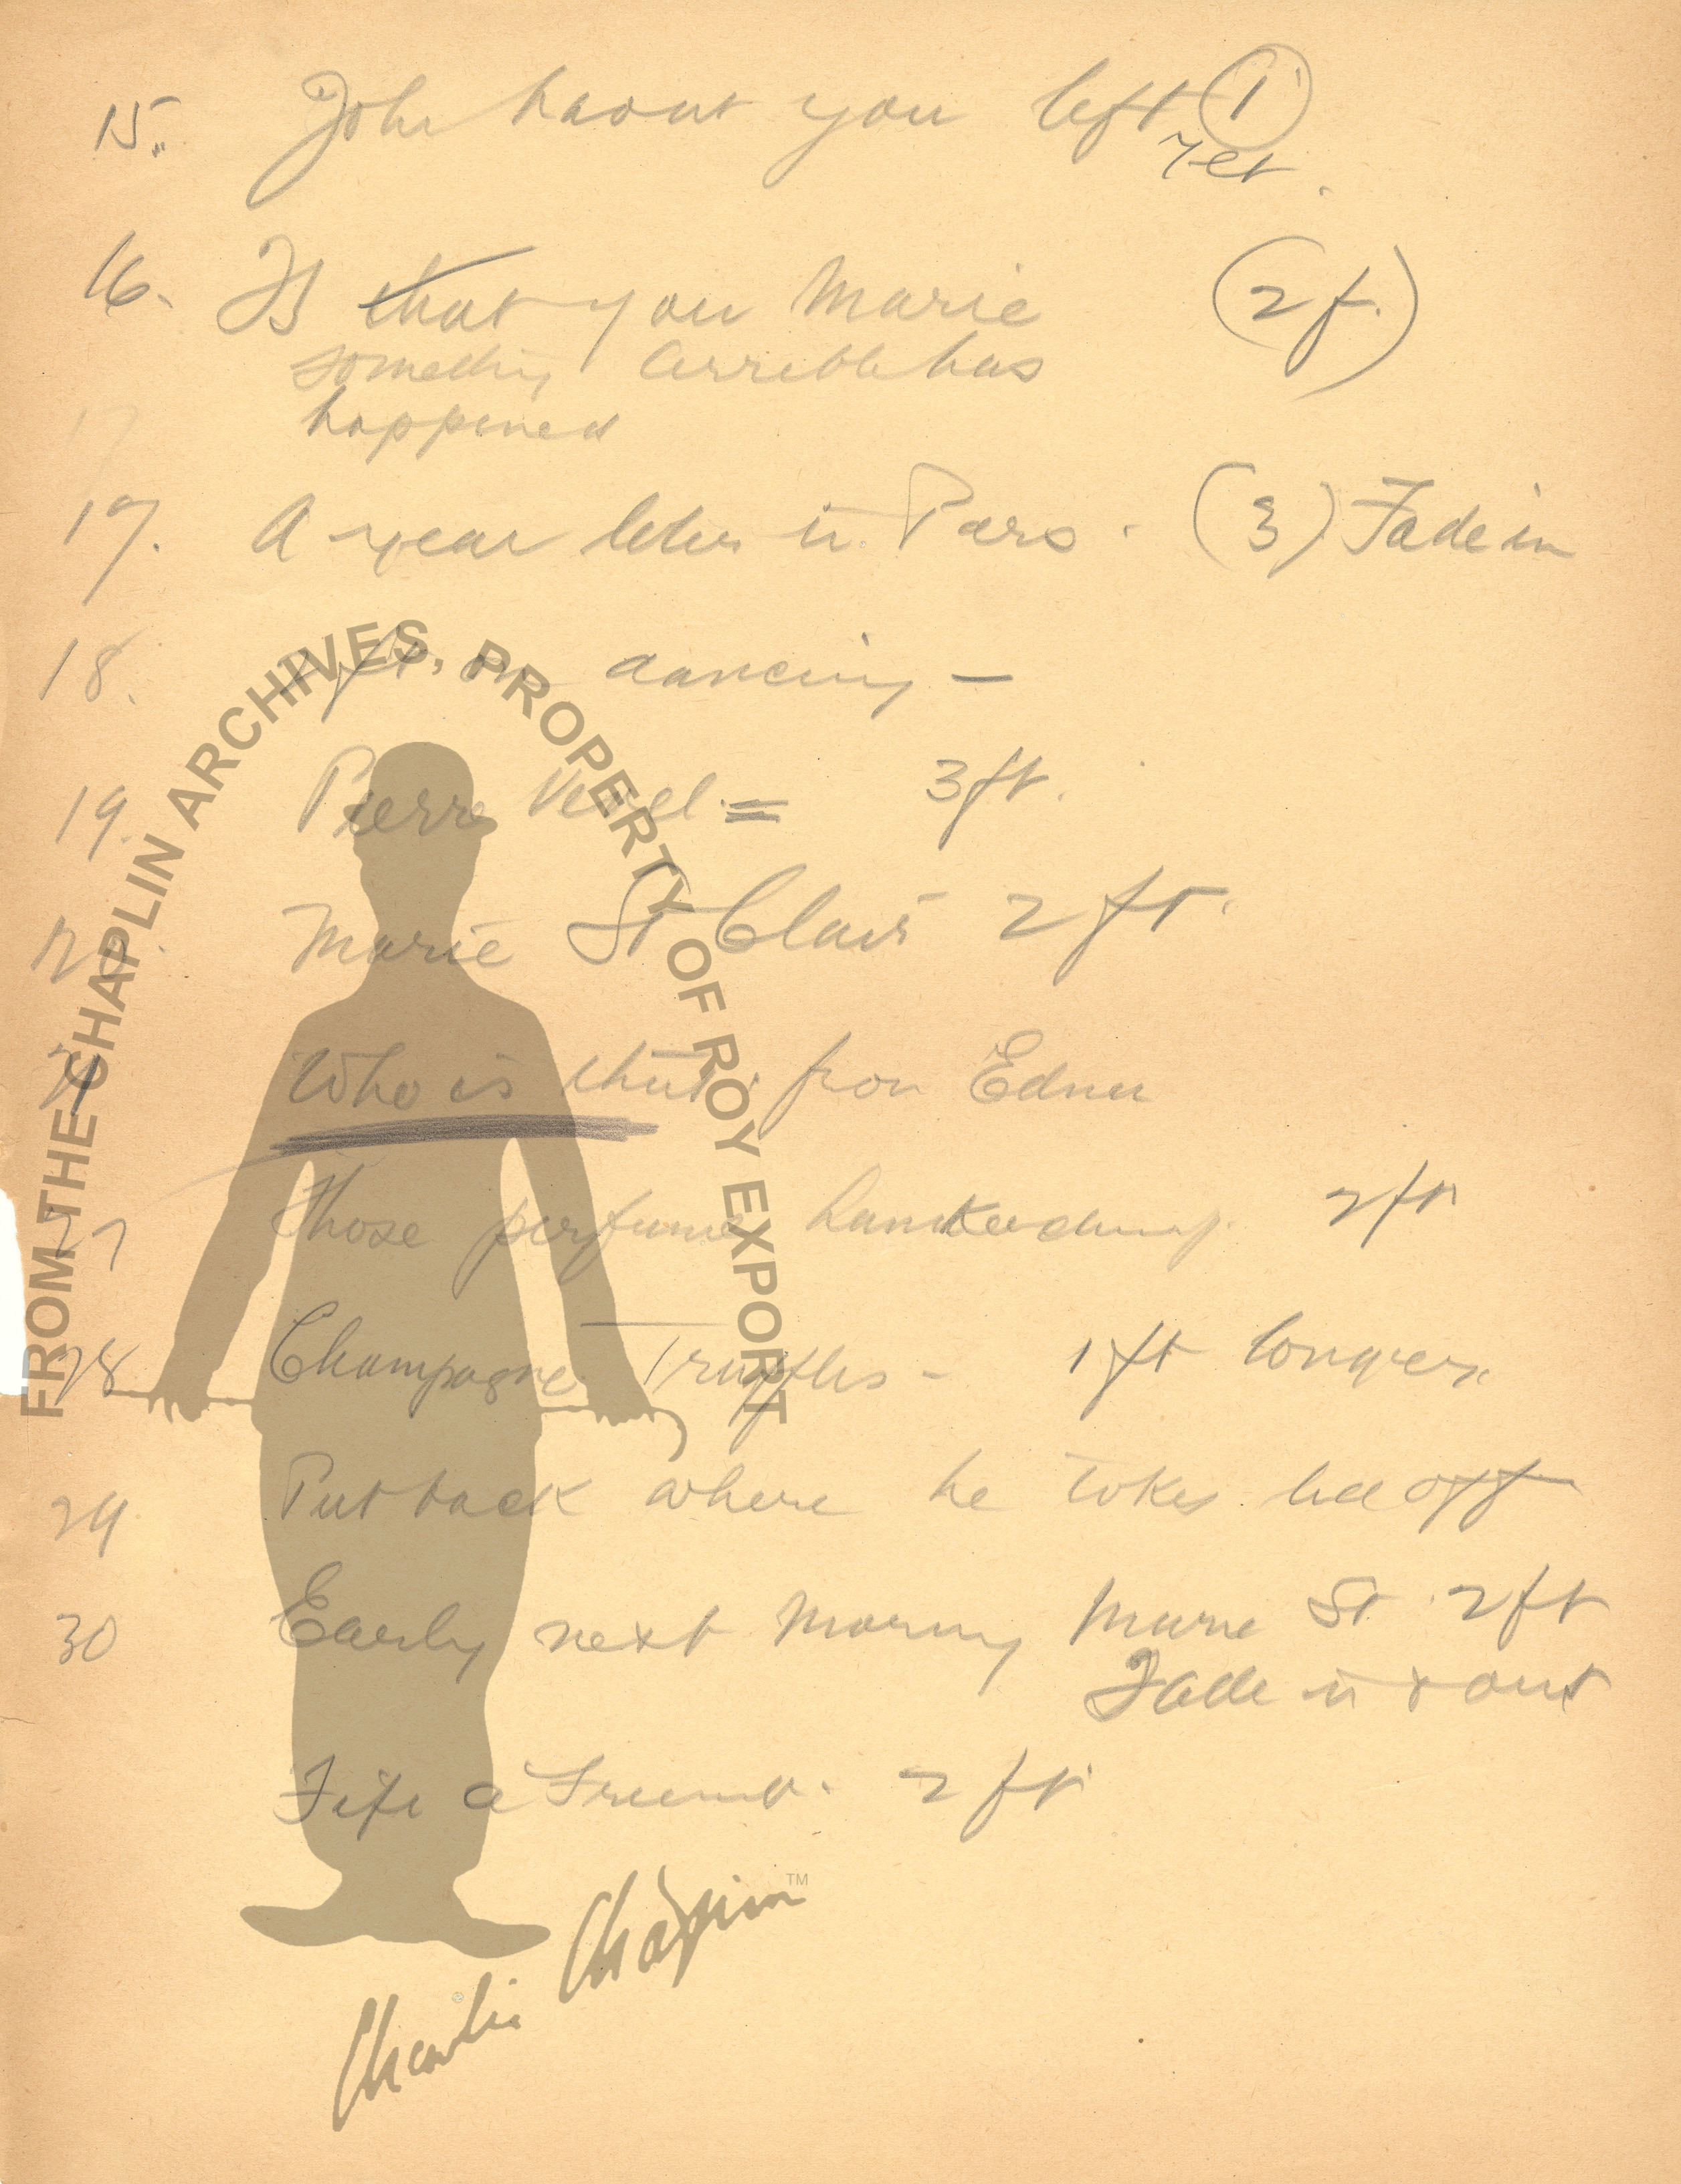 15. John havnt you left ①
yet.
16. Is that you Marie (2 f.)
something terrible has
happened
17
17. A year later in Paris. (3) Fade in
18. ft. on dancing —
19. Pierre Revel = 3 ft.
20. Marie St Clair 2 ft.
21 Who is that. from Edna
27 Those perfume 2 ft
28 Champagne Truffles - 1 ft longer.
29 Put back where he takes lid off
30 Early next morning Marie St. 2 ft
Fade in & out
Fifi a friend. 2 ft
FROM THE CHAPLIN ARCHIVES, PROPERTY OF ROY EXPORT
Charlie Chaplin TM